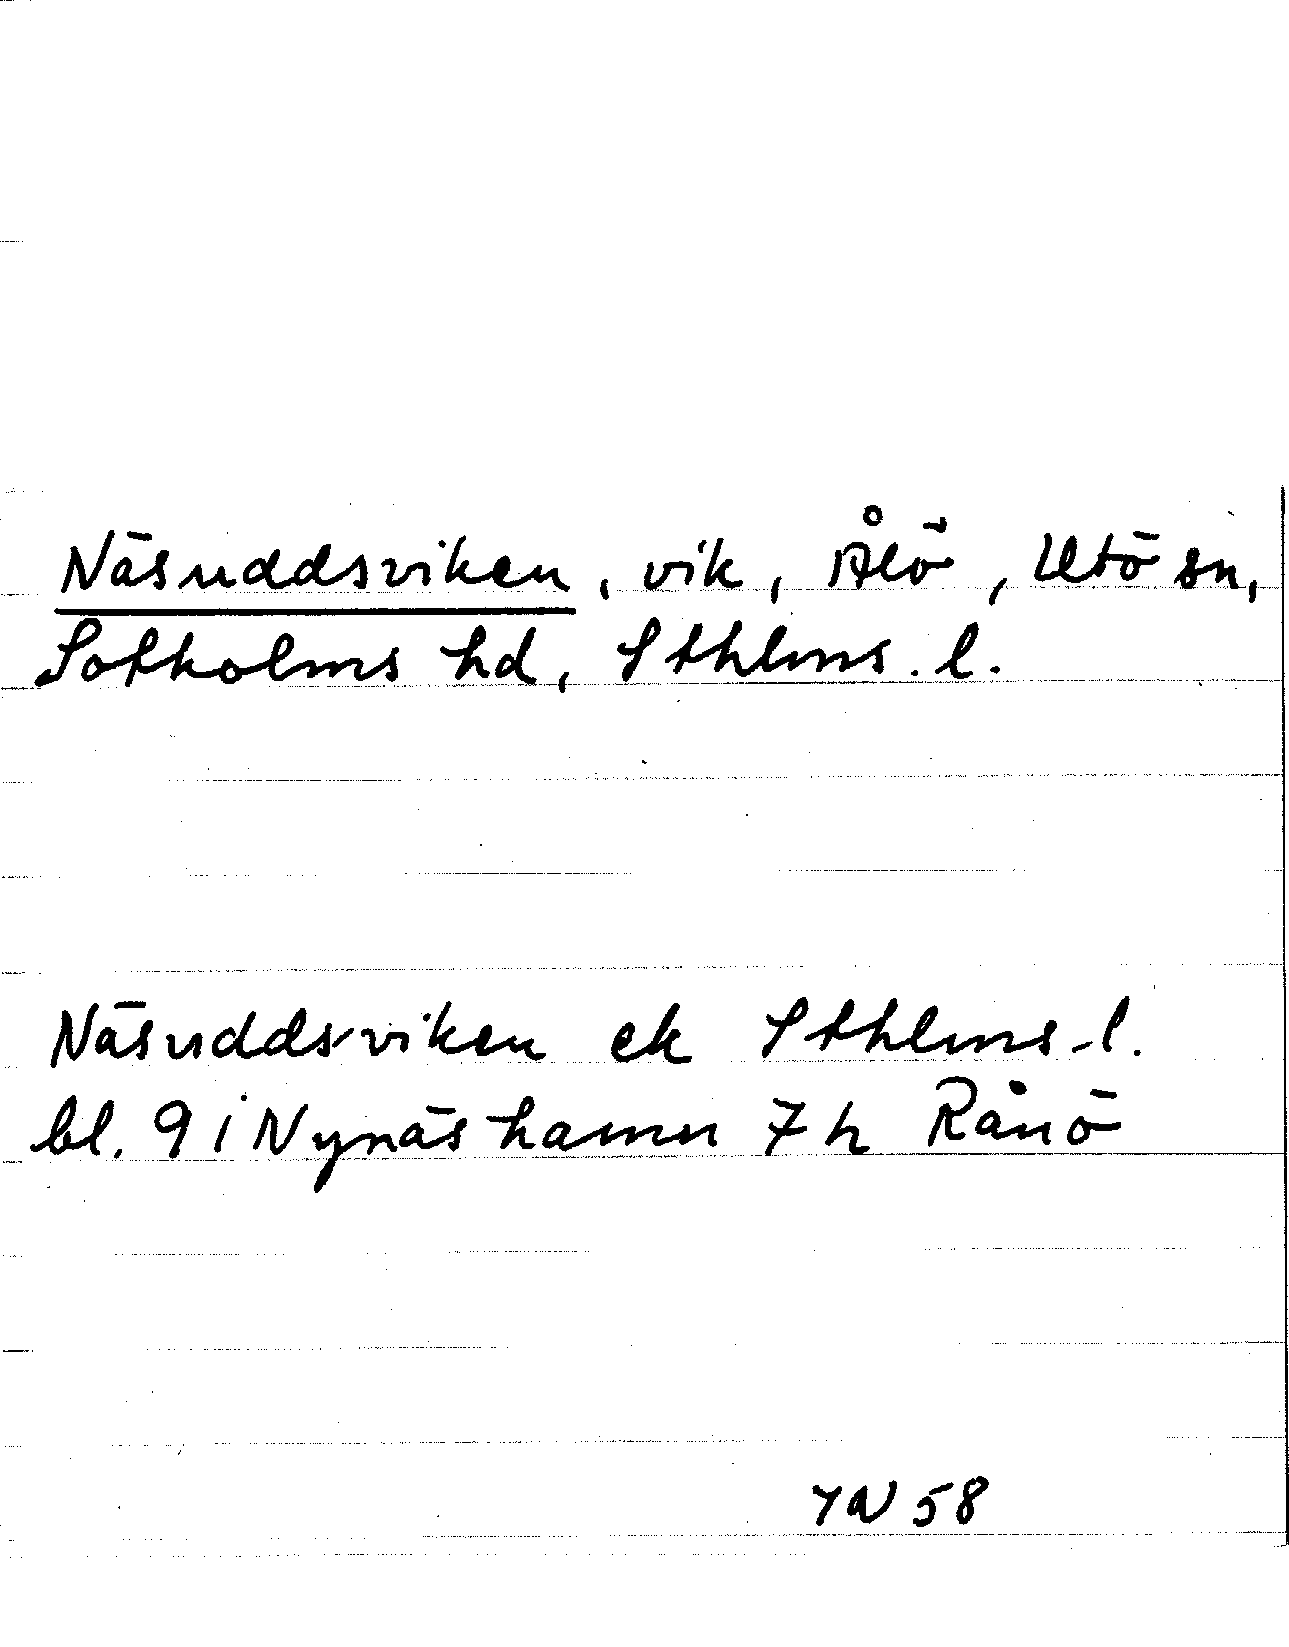 Näsuddsviken, vik, Ålö, Utö sn,
Sotholms hd, Sthlms. l.
Näsuddsviken ek Sthlms. l.
bl. 9 i Nynäshamn 7 h Rånö
58